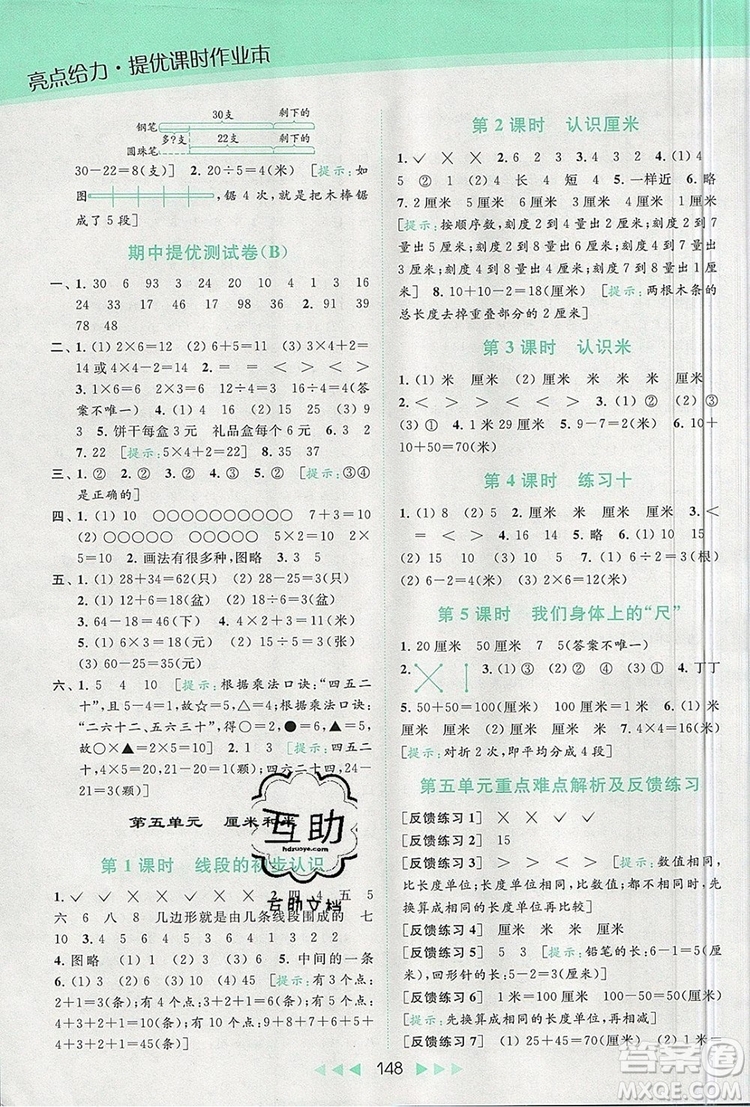 亮点给力·提优课时作业本
30支 剩下的
钢笔
多?支 22支 剩下的
圆珠笔
30-22=8(支)] 2. 20÷5=4(米) [提示:如
图 ,锯 4 次,就是把木棒锯
成了 5 段]
期中提优测试卷(B)
一、1. 30 6 93 3 24 9 20 10 4 1 3 16
24 33 17 48 18 34 20 18 2. 91 39
78 48
二、1. (1) 2×6=12 (2) 6+5=11 (3) 4×2+2=
14或4×4-2=14 2. = < > < > =
3. 1×6=6 2×3=6 24÷4=6 6÷1=6(答
案不唯一) 4. (1) 6 24 (2) 35 15 (3) 9
3 5. 饼干每盒3元 礼品盒每个6元 6. 3 2
7. 22 [提示: ] 8. B
三、1. ② 2. ② 3. ② 4. ① 5. ② [提示:③④
是正确的]
四、1. (1) ○○○○○○○○○○ 7+3=10
(2) ○○○○○ ○○○○○ 5×2=10
2. 画法有多种,图略 3. B
五、1. (1) 28+34=62(只) (2) 62-58=4(只)
2. (1) 12+6=18(盆) (2) 18÷6=3(盆)
3. 18+48=66(下) 4. 18÷3=6(元)
5. (1) 6×3=18(元) (2) 20÷10=2(张)
(3) 20-18=2(元) 2÷1=2(张)
六、1. 5 4 10 [提示:根据乘法口诀:“四五二
十”,且5-4=1,故☆=5,△=4;根据乘法口诀:
“二六十二、五六三十”,得○=2,●=6,▲=5,
故○×▲=2×5=10] 2. 1 3 [提示:四六二十
四,四五二十,24-20=4(颗);四六二十四,
24-3=21(颗),21-20=1(颗)]
第五单元 厘米和米
第 1 课时 线段的初步认识
1. ✓ ✓ × × × × 2. 四 四 五 5
六 6 八 8 几边形就是由几条线段围成的 七
十 3. (1) 10 (2) 9
4. 图略 5. (1) ② (2) ② 6. 中间的一条
7. (1) 3 6 10 (2) 45 [提示:(1) 有3个点:
2+1=3(条);有4个点:3+2+1=6(条);有5
个点:4+3+2+1=10(条) (2) 有10个点:
9+8+7+6+5+4+3+2+1=45(条)]
第 2 课时 认识厘米
1. ✓ × × 2. 6 2 3 3. 略 4. (1) 4
5 ② 1 (2) 4 长 4 短 5. 一样近 6. 略
7. 2厘米 3厘米 5厘米 6厘米 7厘米 8厘米
[提示:按顺序数,刻度2到4量出2厘米;刻度4
到7量出3厘米;刻度2到7量出5厘米;刻度4
到10量出6厘米;刻度2到9量出7厘米;刻度
2到10量出8厘米] 8. 10+10=20(厘米)
20-2=18(厘米) [提示:两根木条的总
长度去掉重叠部分的2厘米]
第 3 课时 认识米
1. (1) 米 厘米 (2) 米 厘米 (3) 厘米 米
2. < > > < < > 3. (1) ② (2) ③ ①
(3) ① 4. 29 5. 9-7=2(厘米) 6. 10+
10+50=70(米)
第 4 课时 练习十
1. (1) 8 (2) 5 2. 4 5 3. <
= < > = < 4. 略
5. 6厘米 6. (1) 6÷2=3(根)
(2) 6-2=4(厘米) 4÷2=2(厘米)
第 5 课时 我们身体上的“尺”
1. 20厘米 50厘米 7 5 (答案不唯一)
2. 3. (1) ② (2) ② (3) ③ 4. 丁丁
5. 50+50=100(厘米) 100厘米=1米 6. (1)
米 厘米 厘米 厘米 米 7. 4×4=16(米)
[提示:对折2次,即平均分成4段]
第五单元重点难点解析及反馈练习
[反馈练习1] × ✓ ✓
[反馈练习2] 15
[反馈练习3] > > < > [提示:数值相同,
比长度单位;长度单位相同,比数值;都不同,先
换算成相同的长度单位再比较]
[反馈练习4] 厘米 米 厘米 米
[反馈练习5] 5 3 [提示:铅笔的长度:7-2=
5(厘米),回形针的长度:5-2=3(厘米)]
[反馈练习6] 1米=100厘米 100-50=50(厘
米) [提示:先换算成相同的长度单位,再相减]
[反馈练习7] (1) 20+25=45(厘米)
互助
hdzuoye.com
互助文档
148
答案圈
MXQE.COM